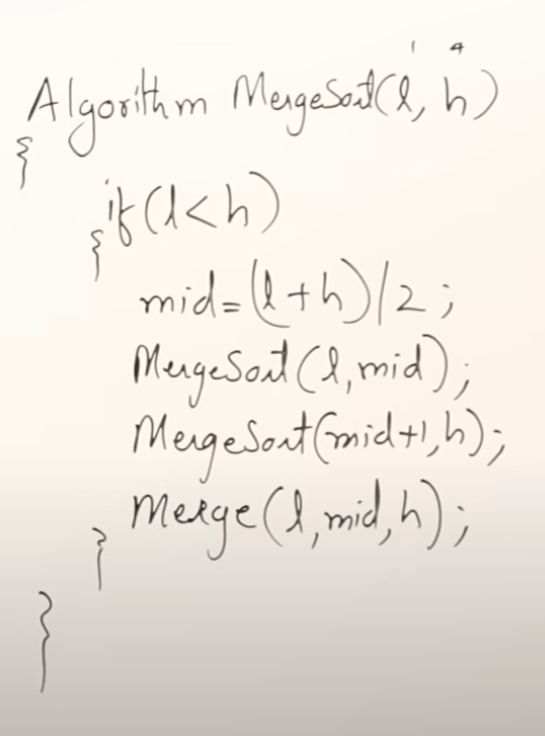 1 4
Algorithm MergeSort(l, h)
{
if(l<h)
{
mid=(l+h)/2;
MergeSort(l,mid);
MergeSort(mid+1,h);
Merge(l,mid,h);
}
}